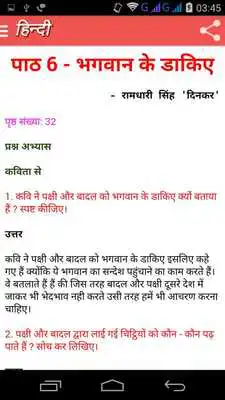 03:45
हिन्दी
पाठ 6 - भगवान के डाकिए
- रामधारी सिंह 'दिनकर'
पृष्ठ संख्या: 32
प्रश्न अभ्यास
कविता से
1. कवि ने पक्षी और बादल को भगवान के डाकिए क्यों बताया
हैं ? स्पष्ट कीजिए।
उत्तर
कवि ने पक्षी और बादल को भगवान के डाकिए इसलिए कहे
गए हैं क्योंकि ये भगवान का सन्देश पहुंचाने का काम करते हैं।
वे बतलाते हैं हैं की जिस तरह बादल और पक्षी दूसरे देश में
जाकर भी भेदभाव नही करते उसी तरह हमें भी आचरण करना
चाहिए।
2. पक्षी और बादल द्वारा लाई गई चिट्ठियों को कौन - कौन पढ़
पाते हैं ? सोच कर लिखिए।